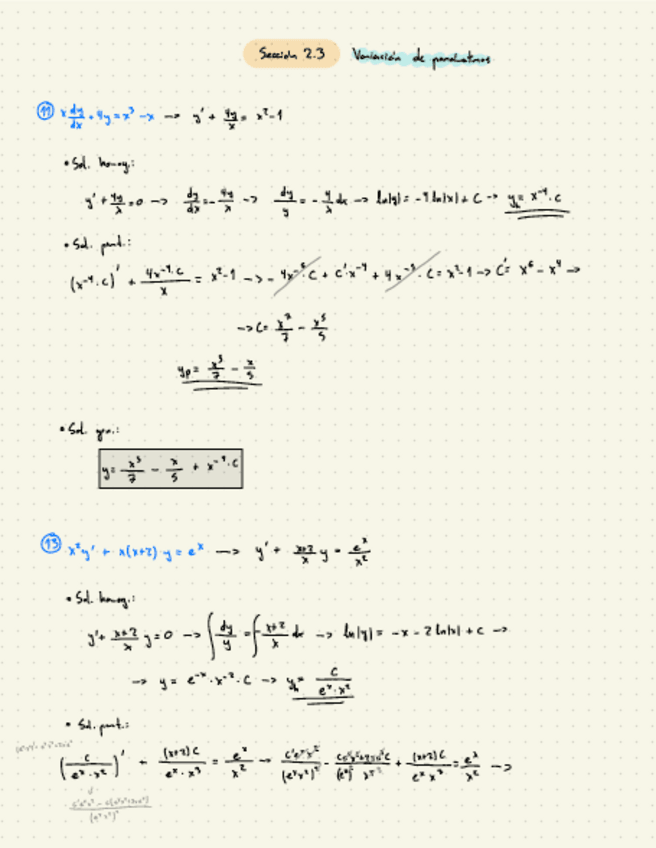 Sección 2.3 Variación de parámetros
11 x dy/dx + 4y = x³ - x → y' + 4y/x = x² - 1
• Sol. homog.:
y' + 4y/x = 0 → dy/dx = - 4y/x → dy/y = - 4/x dx → ln|y| = -4 ln|x| + C → yₕ = x⁻⁴ · C
• Sol. part.:
(x⁻⁴ · C)' + 4x⁻⁴·C/x = x² - 1 → - 4x⁻⁵·C + C'·x⁻⁴ + 4x⁻⁵·C = x² - 1 → C' = x⁶ - x⁴ →
→ C = x⁷/7 - x⁵/5
yₚ = x³/7 - x/5
• Sol. gen.:
y = x³/7 - x/5 + x⁻⁴·C
13 x²y' + x(x+2) y = eˣ → y' + x+2/x y = eˣ/x²
• Sol. homog.:
y' + x+2/x y = 0 → ∫ dy/y = ∫ - x+2/x dx → ln|y| = -x - 2 ln|x| + C →
→ y = e⁻ˣ · x⁻² · C → yₕ = C/eˣ·x²
• Sol. part.:
(C/eˣ·x²)' + (x+2)C/eˣ·x³ = eˣ/x² →
+ (x+2)C/eˣ x³ = eˣ/x² →